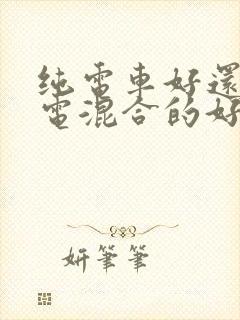 纯電車好還
電混合的好
妍筆筆